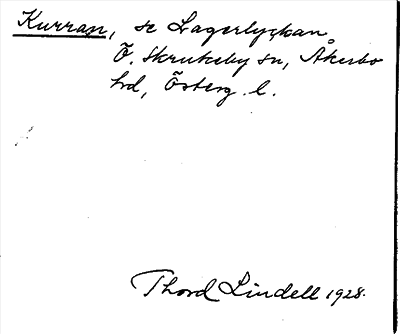 Kurran, se Lagerlyckan,
Ö. Skrukeby sn, Åkerbo
hd, Österg. l.
Thord Lindell 1928.